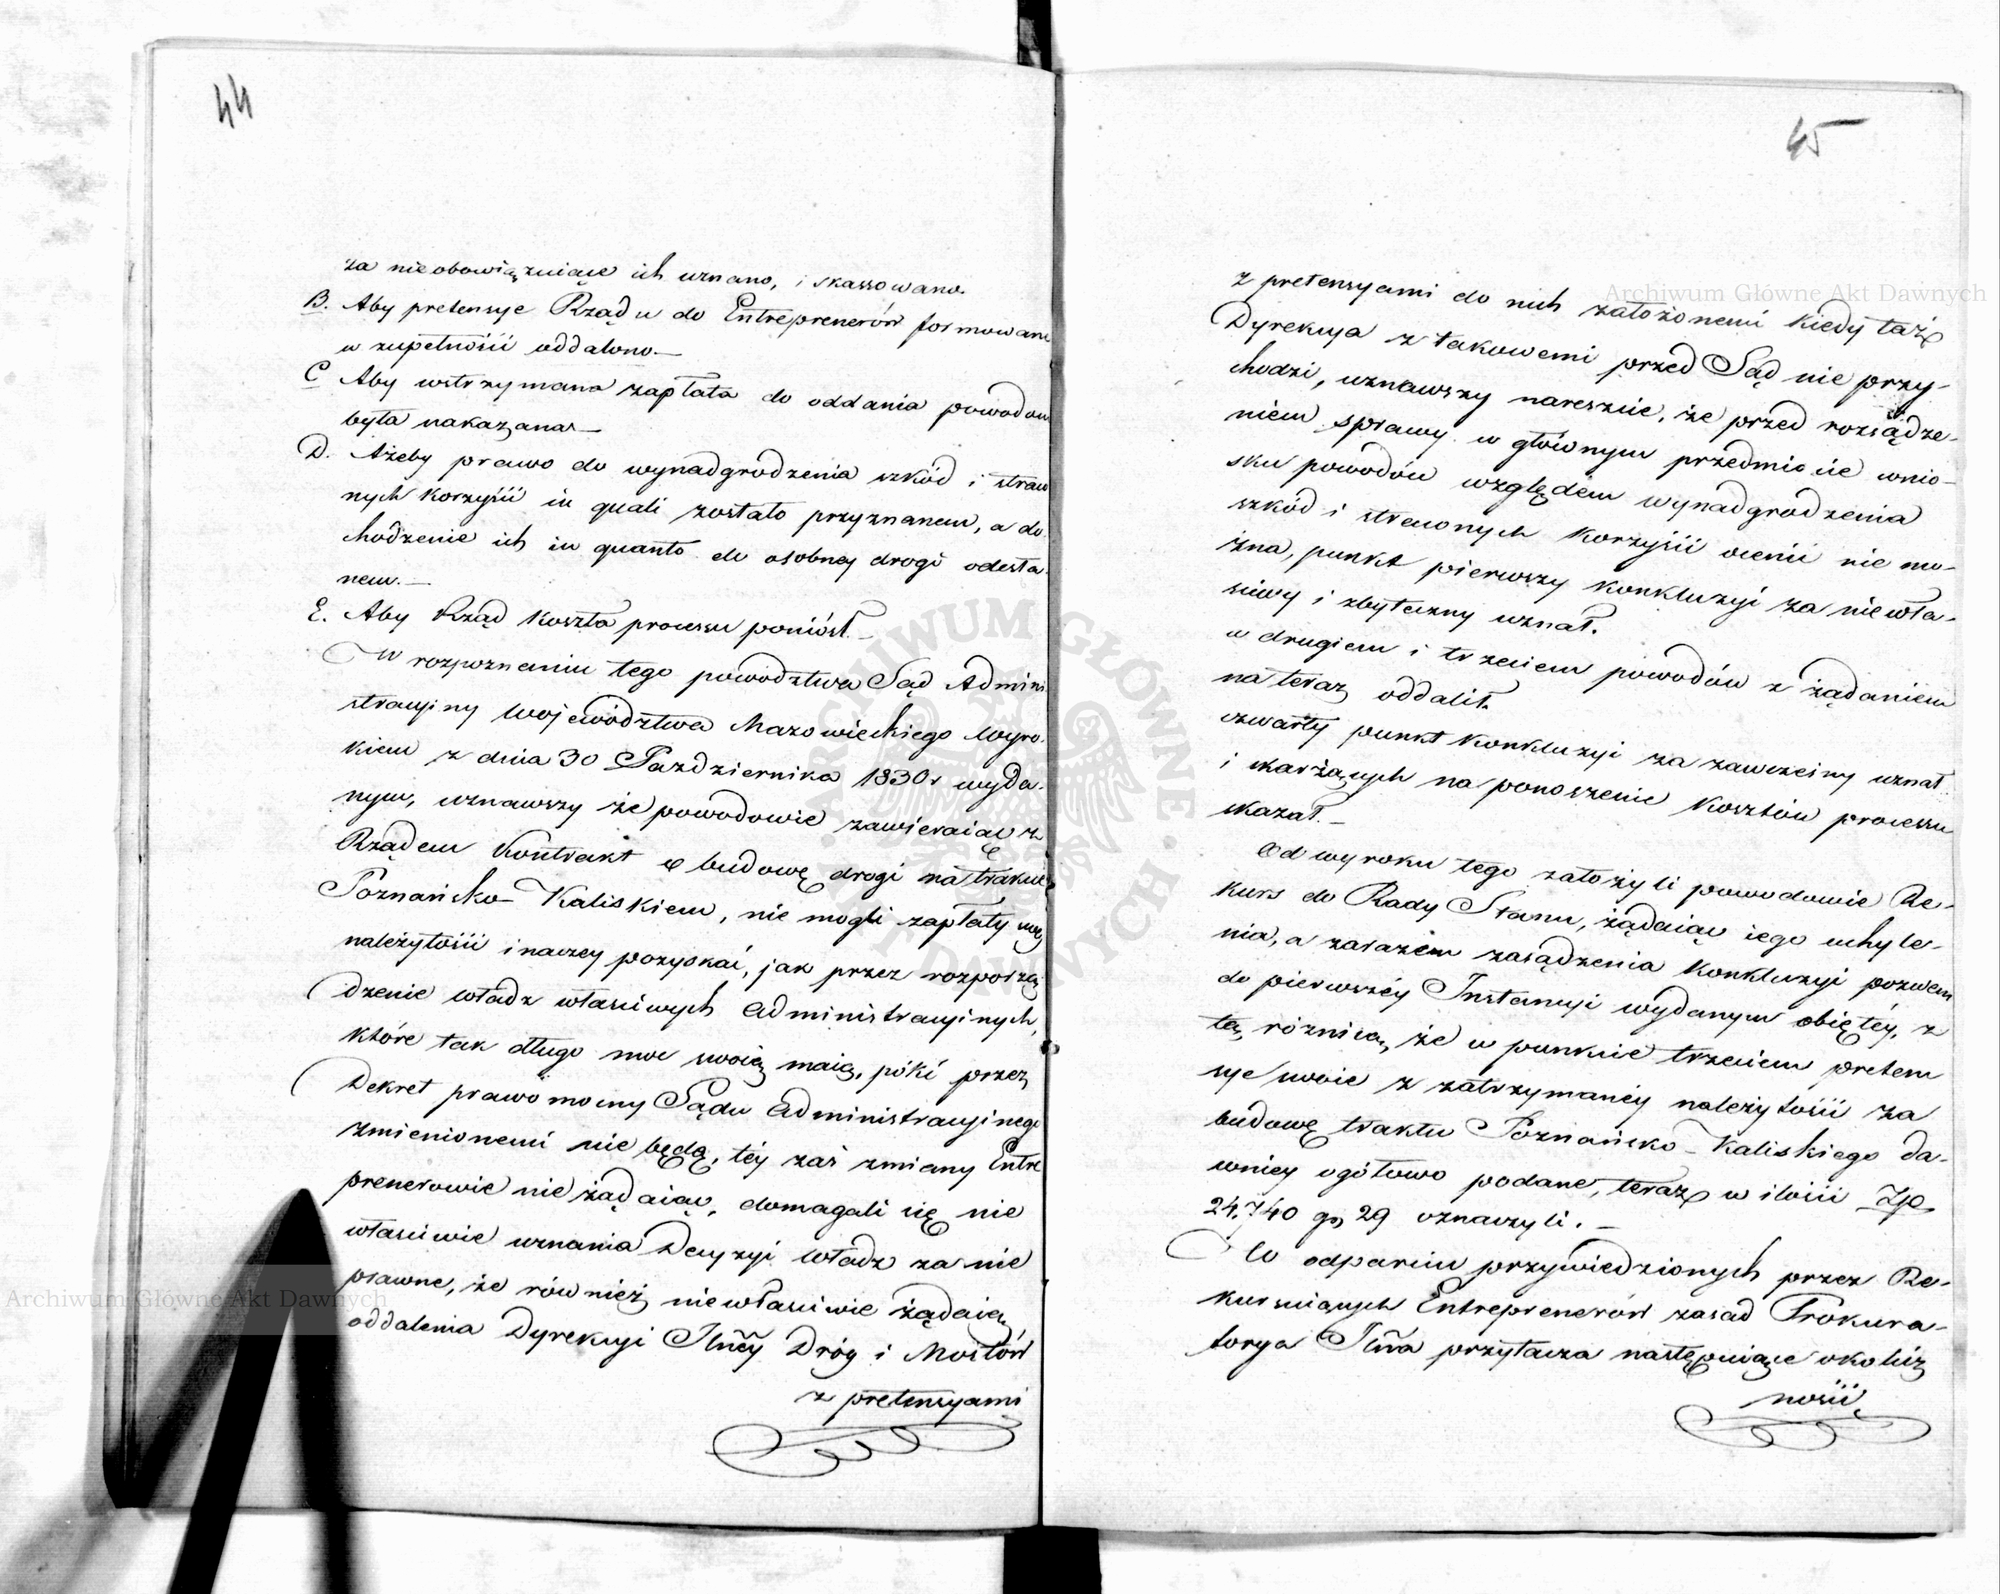 44
za nieobowiązuiące ich uznano, i skassowano.
B. Aby pretensye Rządu do Entreprenerów formowane
w zupełności oddalono.—
C Aby wstrzymana zapłata do oddania powodom
była nakazana.—
D. Ażeby prawo do wynadgrodzenia szkód i straco
nych korzyści in quali zostało przyznanem, a do
chodzenie ich in quanto do osobney drogi odesła
nem.—
E. Aby Rząd koszta processu poniósł.—
W rozpoznaniu tego powództwa Sąd Admini
stracyiny Województwa Mazowieckiego Wyro-
kiem z dnia 30 Października 1830 r wyda-
nym, uznawszy że powodowie zawieraiąc z
Rządem Kontrakt o budowę drogi na trakcie
Poznańsko-Kaliskiem, nie mogli zapłaty swey
należytości inaczey pozyskać, jak przez rozporzą
dzenie władz właściwych Administracyinych,
które tak długo moc swoią maią, póki przez
Dekret prawomocny Sądu Administracyinego
zmienionemi nie będą, téy zaś zmiany Entre
prenerowie nie żądaiąc, domagali się nie
właściwie uznania Decyzyi władz za nie
prawne, że również niewłaściwie żądaią
oddalenia Dyrekcyi Jlnéy Dróg i Mostów
z pretensyami
45
z pretensyami do nich założonemi kiedy taż
Dyrekcya z takowemi przed Sąd nie przy-
chodzi, uznawszy nareszcie, że przed rozsądze-
niem sprawy w głównym przedmiocie wnio-
sku powodów względem wynadgrodzenia
szkód i straconych korzyści ocenić nie mo-
żna, punkt pierwszy konkluzyi za niewła-
ściwy i zbyteczny uznał.
w drugiem i trzeciem powodów z żądaniem
na teraz oddalił.
czwarty punkt konkluzyi za zawczesny uznał
i skarżących na ponoszenie kosztów processu
skazał.—
Od wyroku tego założyli powodowie Re-
kurs do Rady Stanu, żądaiąc iego uchyle-
nia, a zarazem zasądzenia konkluzyi pozwem
do pierwszéy Instancyi wydanym obiętéy, z
tą różnicą, że w punkcie trzeciem preten
sye swoie z zatrzymanéy należytości za
budowę traktu Poznańsko-Kaliskiego da-
wniey ogółowo podane, teraz w ilości Złp.
24,740 gr 29 oznaczyli.—
W odparciu przywiedzionych przez Re-
kursuiących Entreprenerów zasad Prokura-
torya Jlna przytacza następuiące okolicz
ności
Archiwum Główne Akt Dawnych
Archiwum Główne Akt Dawnych
ARCHIWUM GŁÓWNE AKT DAWNYCH